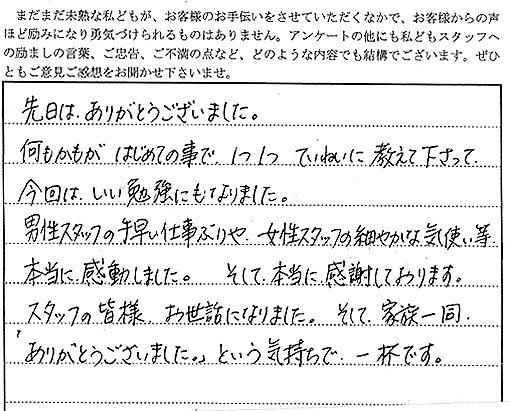 まだまだ未熟な私どもが、お客様のお手伝いをさせていただくなかで、お客様からの声
ほど励みになり勇気づけられるものはありません。アンケートの他にも私どもスタッフへ
の励ましの言葉、ご忠告、ご不満の点など、どのような内容でも結構でございます。ぜひ
ともご意見ご感想をお聞かせ下さいませ。
先日は、ありがとうございました。
何もかもが はじめての事で、1つ1つ ていねいに 教えて下さって、
今回は、いい勉強にもなりました。
男性スタッフの手早い仕事ぶりや、女性スタッフの細やかな気使い等、
本当に 感動しました。 そして、本当に 感謝しております。
スタッフの皆様、お世話になりました。 そして、家族一同、
「ありがとうございました。」という気持ちで、一杯です。